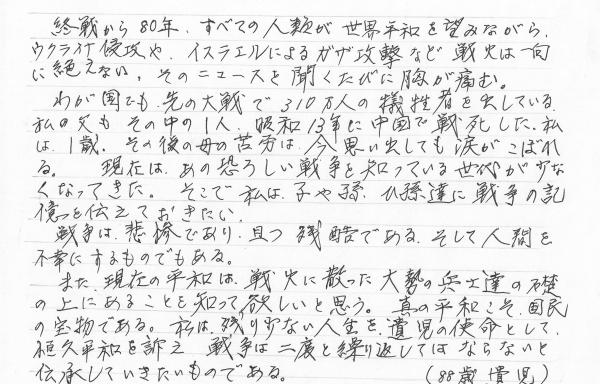 終戦から80年、すべての人類が世界平和を望みながら、
ウクライナ侵攻や、イスラエルによるガザ攻撃など戦火は一向
に絶えない。そのニュースを聞くたびに胸が痛む。
わが国でも、先の大戦で310万人の犠牲者を出している。
私の父も その中の1人、昭和13年に中国で戦死した。私
は、1歳。その後の母の苦労は、今思い出しても涙がこぼれ
る。 現在は、あの恐ろしい戦争を知っている世代が少な
くなってきた。そこで私は、子や孫、ひ孫達に戦争の記
憶を伝えておきたい。
戦争は、悲惨であり、且つ残酷である。そして人間を
不幸にするものでもある。
また、現在の平和は、戦火に散った大勢の兵士達の礎
の上にあることを知って欲しいと思う。真の平和こそ、国民
の宝物である。私は、残り少ない人生を、遺児の使命として、
恒久平和を訴え 戦争は二度と繰り返してはならないと
伝承していきたいものである。 (88歳 遺児)